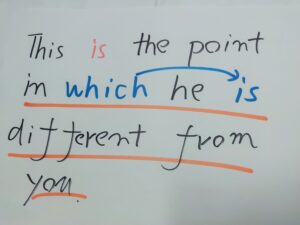 This is the point
in which he is
different from
you.